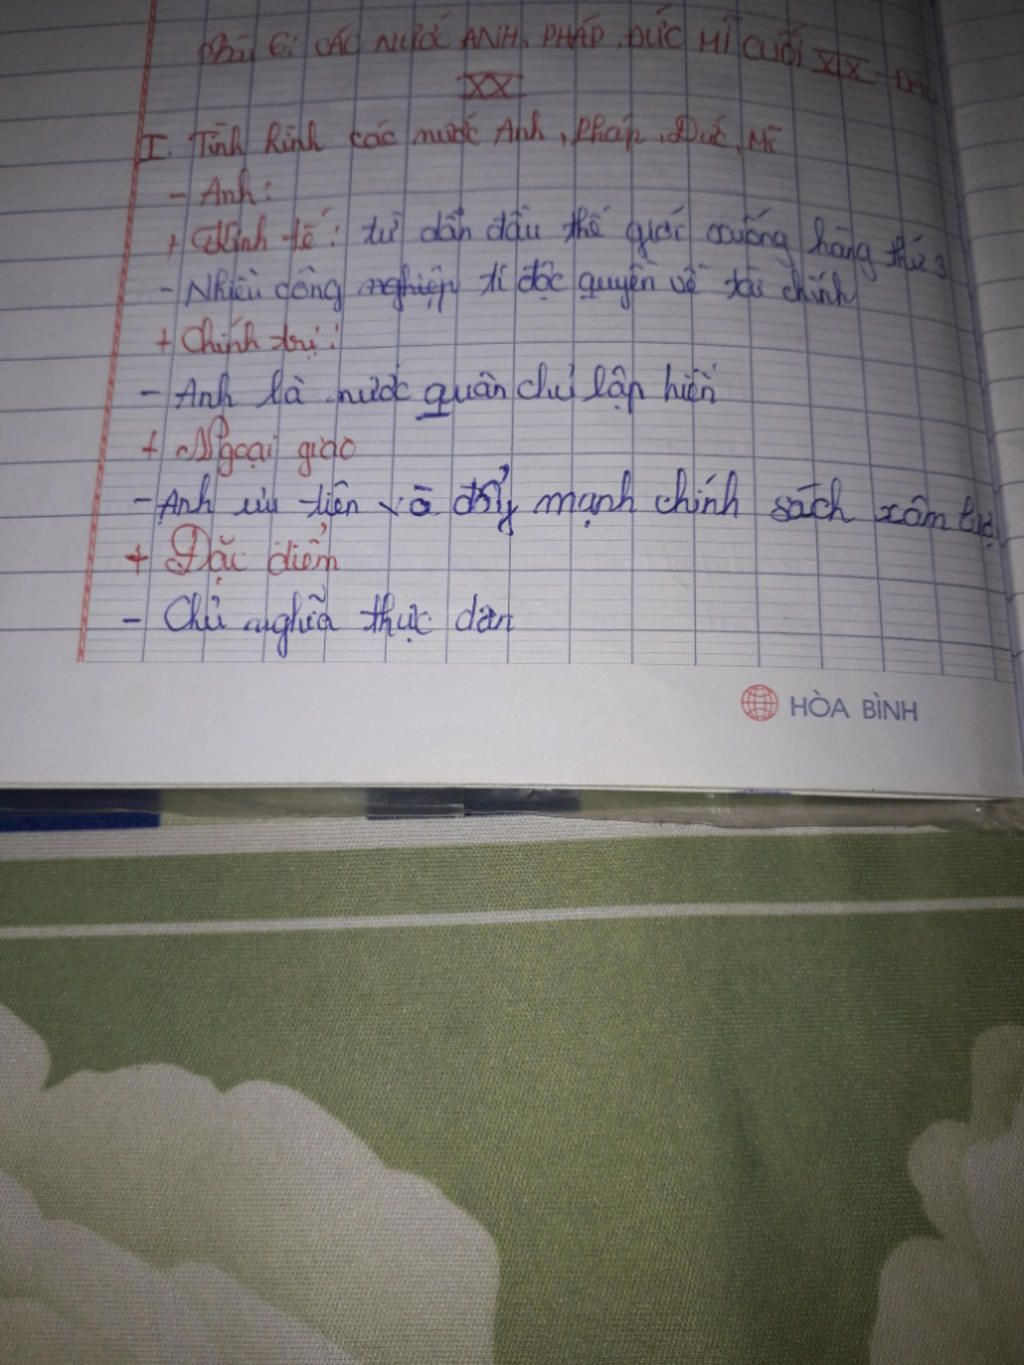 Bài 6: CÁC NƯỚC ANH, PHÁP, ĐỨC MĨ CUỐI XIX - ĐẦU
XX
I. Tình hình các nước Anh, Pháp, Đức, Mĩ
- Anh:
+ Kinh tế: từ dẫn đầu thế giới xuống hàng thứ 3
- Nhiều công nghiệp ti độc quyền về tài chính
+ Chính trị:
- Anh là nước quân chủ lập hiến
+ Ngoại giao
- Anh ưu tiên và đẩy mạnh chính sách xâm lược
+ Đặc điểm
- Chủ nghĩa thực dân
HÒA BÌNH